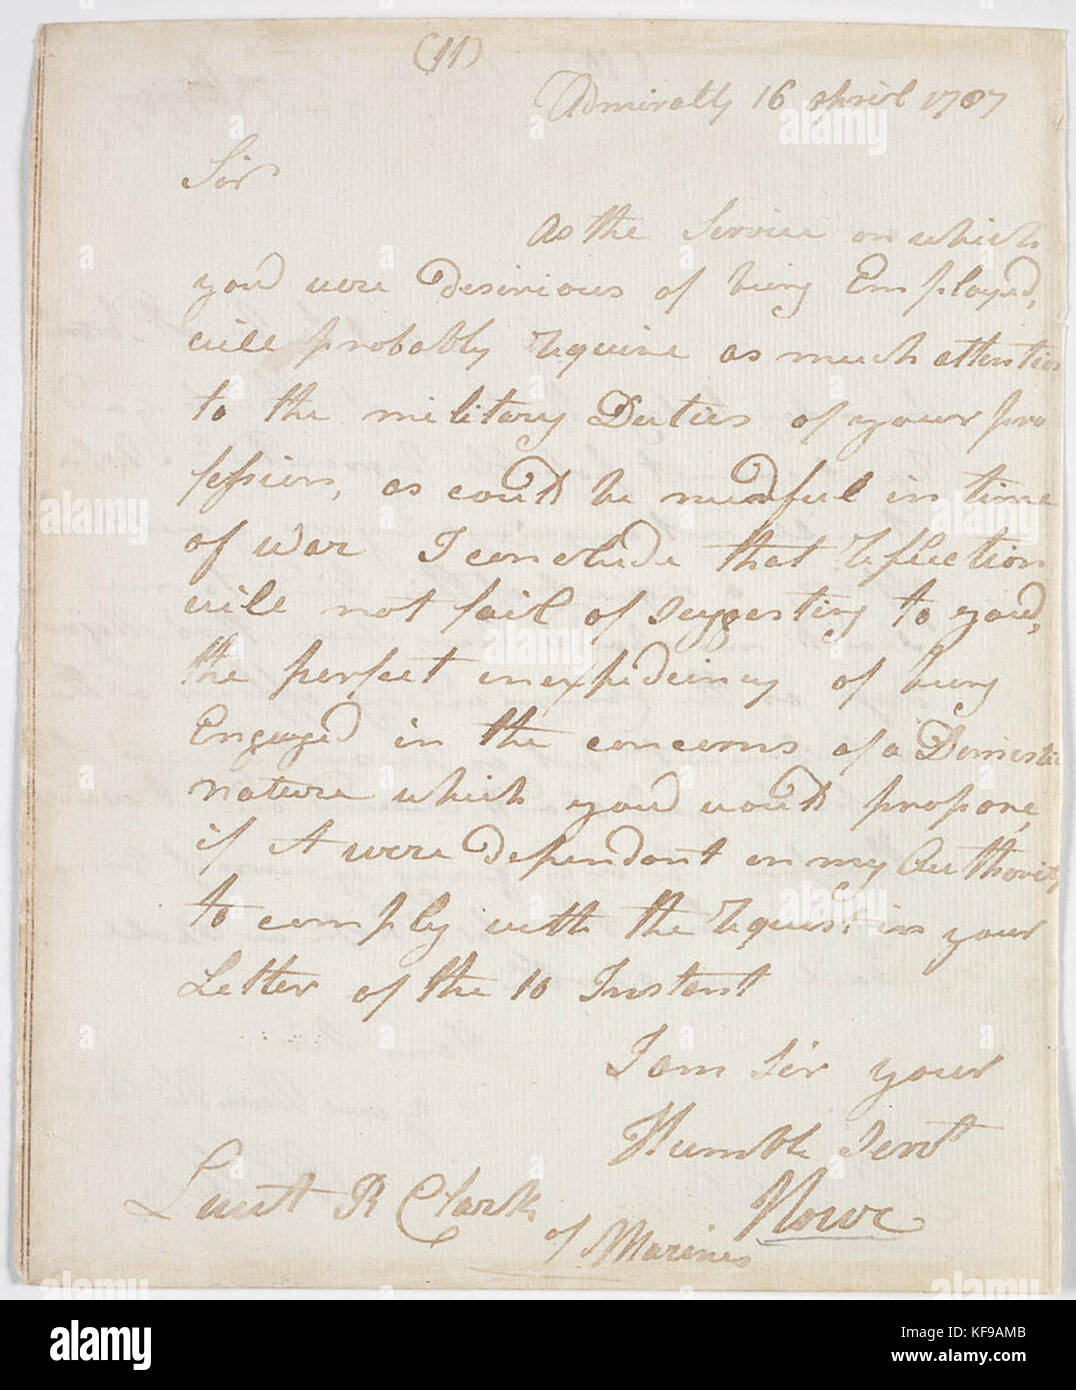 (11)
Admiralty 16 April 1787
Sir
As the Service on which
you were desirious of being Employed,
will probably Require as much attention
to the military Duties of your pro
fession, as could be needful in time
of war I conclude that Reflection
will not fail of suggesting to you,
the perfect inexpediency of being
Engaged in the concerns of a Domestic
nature which you would propose,
if it were dependant on my Authority
to comply with the Request in your
Letter of the 10 Instant
I am Sir your
Humble Servt
Howe
Lieut R Clark
of Marines
alamy
alamy
alamy
alamy
alamy
alamy
Image ID: KF9AMB
www.alamy.com